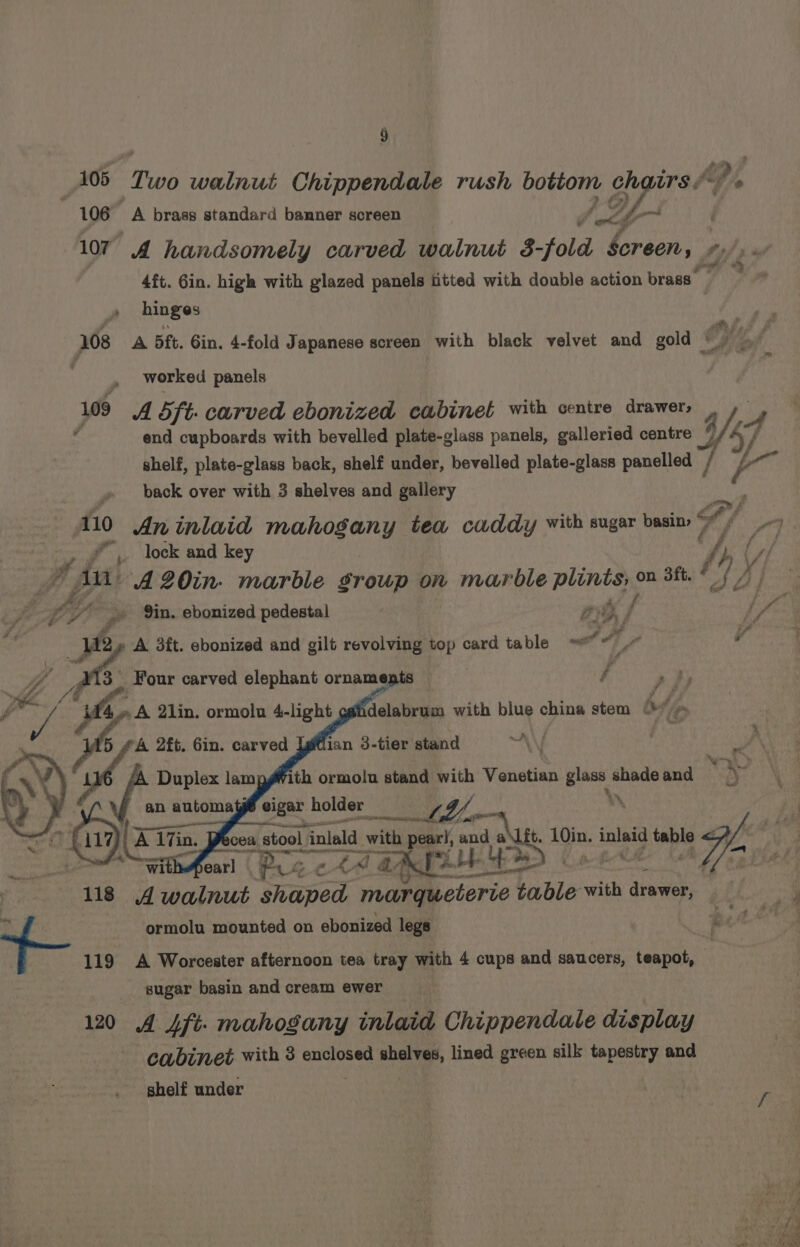 9
105 Two walnut Chippendale rush bottom chairs
106 A brass standard banner screen
107 A handsomely carved walnut 3-fold screen,
4ft. 6in. high with glazed panels fitted with double action brass
hinges
108 A 5ft. 6in. 4-fold Japanese screen with black velvet and gold
worked panels
109 A 5ft. carved ebonized cabinet with centre drawer,
end cupboards with bevelled plate-glass panels, galleried centre
shelf, plate-glass back, shelf under, bevelled plate-glass panelled
back over with 3 shelves and gallery
110 An inlaid mahogany tea caddy with sugar basin,
lock and key
111 A 20in. marble group on marble plints, on 3ft.
9in. ebonized pedestal
112 A 3ft. ebonized and gilt revolving top card table
113 Four carved elephant ornaments
114 A 21in. ormolu 4-light candelabrum with blue china stem
115 A 2ft. 6in. carved Indian 3-tier stand
116 A Duplex lamp with ormolu stand with Venetian glass shade and
an automatic cigar holder
117 A 17in. Mecca stool inlald with pearl, and a 1ft. 10in. inlaid table
with pearl
118 A walnut shaped marqueterie table with drawer,
ormolu mounted on ebonized legs
119 A Worcester afternoon tea tray with 4 cups and saucers, teapot,
sugar basin and cream ewer
120 A 4ft. mahogany inlaid Chippendale display
cabinet with 3 enclosed shelves, lined green silk tapestry and
shelf under